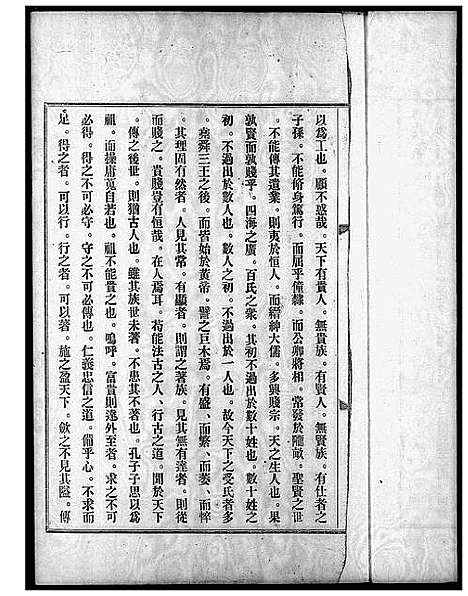 以爲工也。顧不惑哉。天下有貴人。無貴族。有賢人。無賢族。有仕者之
子孫。不能脩身篤行。而屈乎僮隸。而公卿將相。常發於隴畝。聖賢之世
。不能傳其遺業。則夷於恒人。而縉紳大儒。多興賤宗。天之生人也。果
孰賢而孰賤乎。四海之廣。百氏之衆。其初不過出於數十姓也。數十姓之
初。不過出於數人也。數人之初。不過出於一人也。故今天下之受氏者多
。堯舜三王之後。而皆始於黃帝。譬之巨木焉。有盛、而繁、而萎、而悴
。其理固有然者。人見其常。有顯者。則謂之著族。見其無有達者。則從
而賤之。貴賤豈有恒哉。在人焉耳。苟能法古之人、行古之道。聞於天下
。傳之後世。則猶古人也。雖其族世未著。不患其不著也。孔子子思以爲
祖。而操庸茺自若也。祖不能貴之也。嗚呼。富貴則遂外至者。求之不可
必得。得之不可必守。守之不可必傳也。仁義忠信之道。備乎心。不求而
足。得之者。可以行。行之者。可以著。施之盈天下。斂之不見其隘。傳